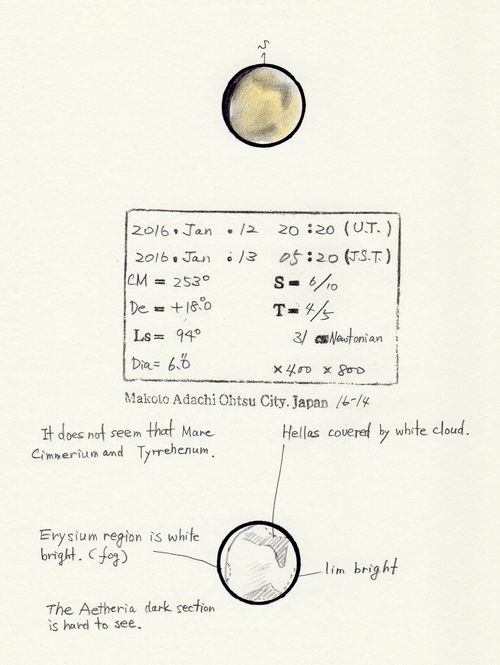 S
2016. Jan . 12 20:20 (U.T.)
2016. Jan . 13 05:20 (J.S.T.)
CM = 253° S = 6/10
De = +18.°0 T = 4/5
Ls = 94° 31 cm Newtonian
Dia = 6."0 ×400 ×800
Makoto Adachi Ohtsu City. Japan 16-14
It does not seem that Mare
Cimmerium and Tyrrehenum.
Hellas covered by white cloud.
Erysium region is white
bright. (fog)
lim bright
The Aetheria dark section
is hard to see.